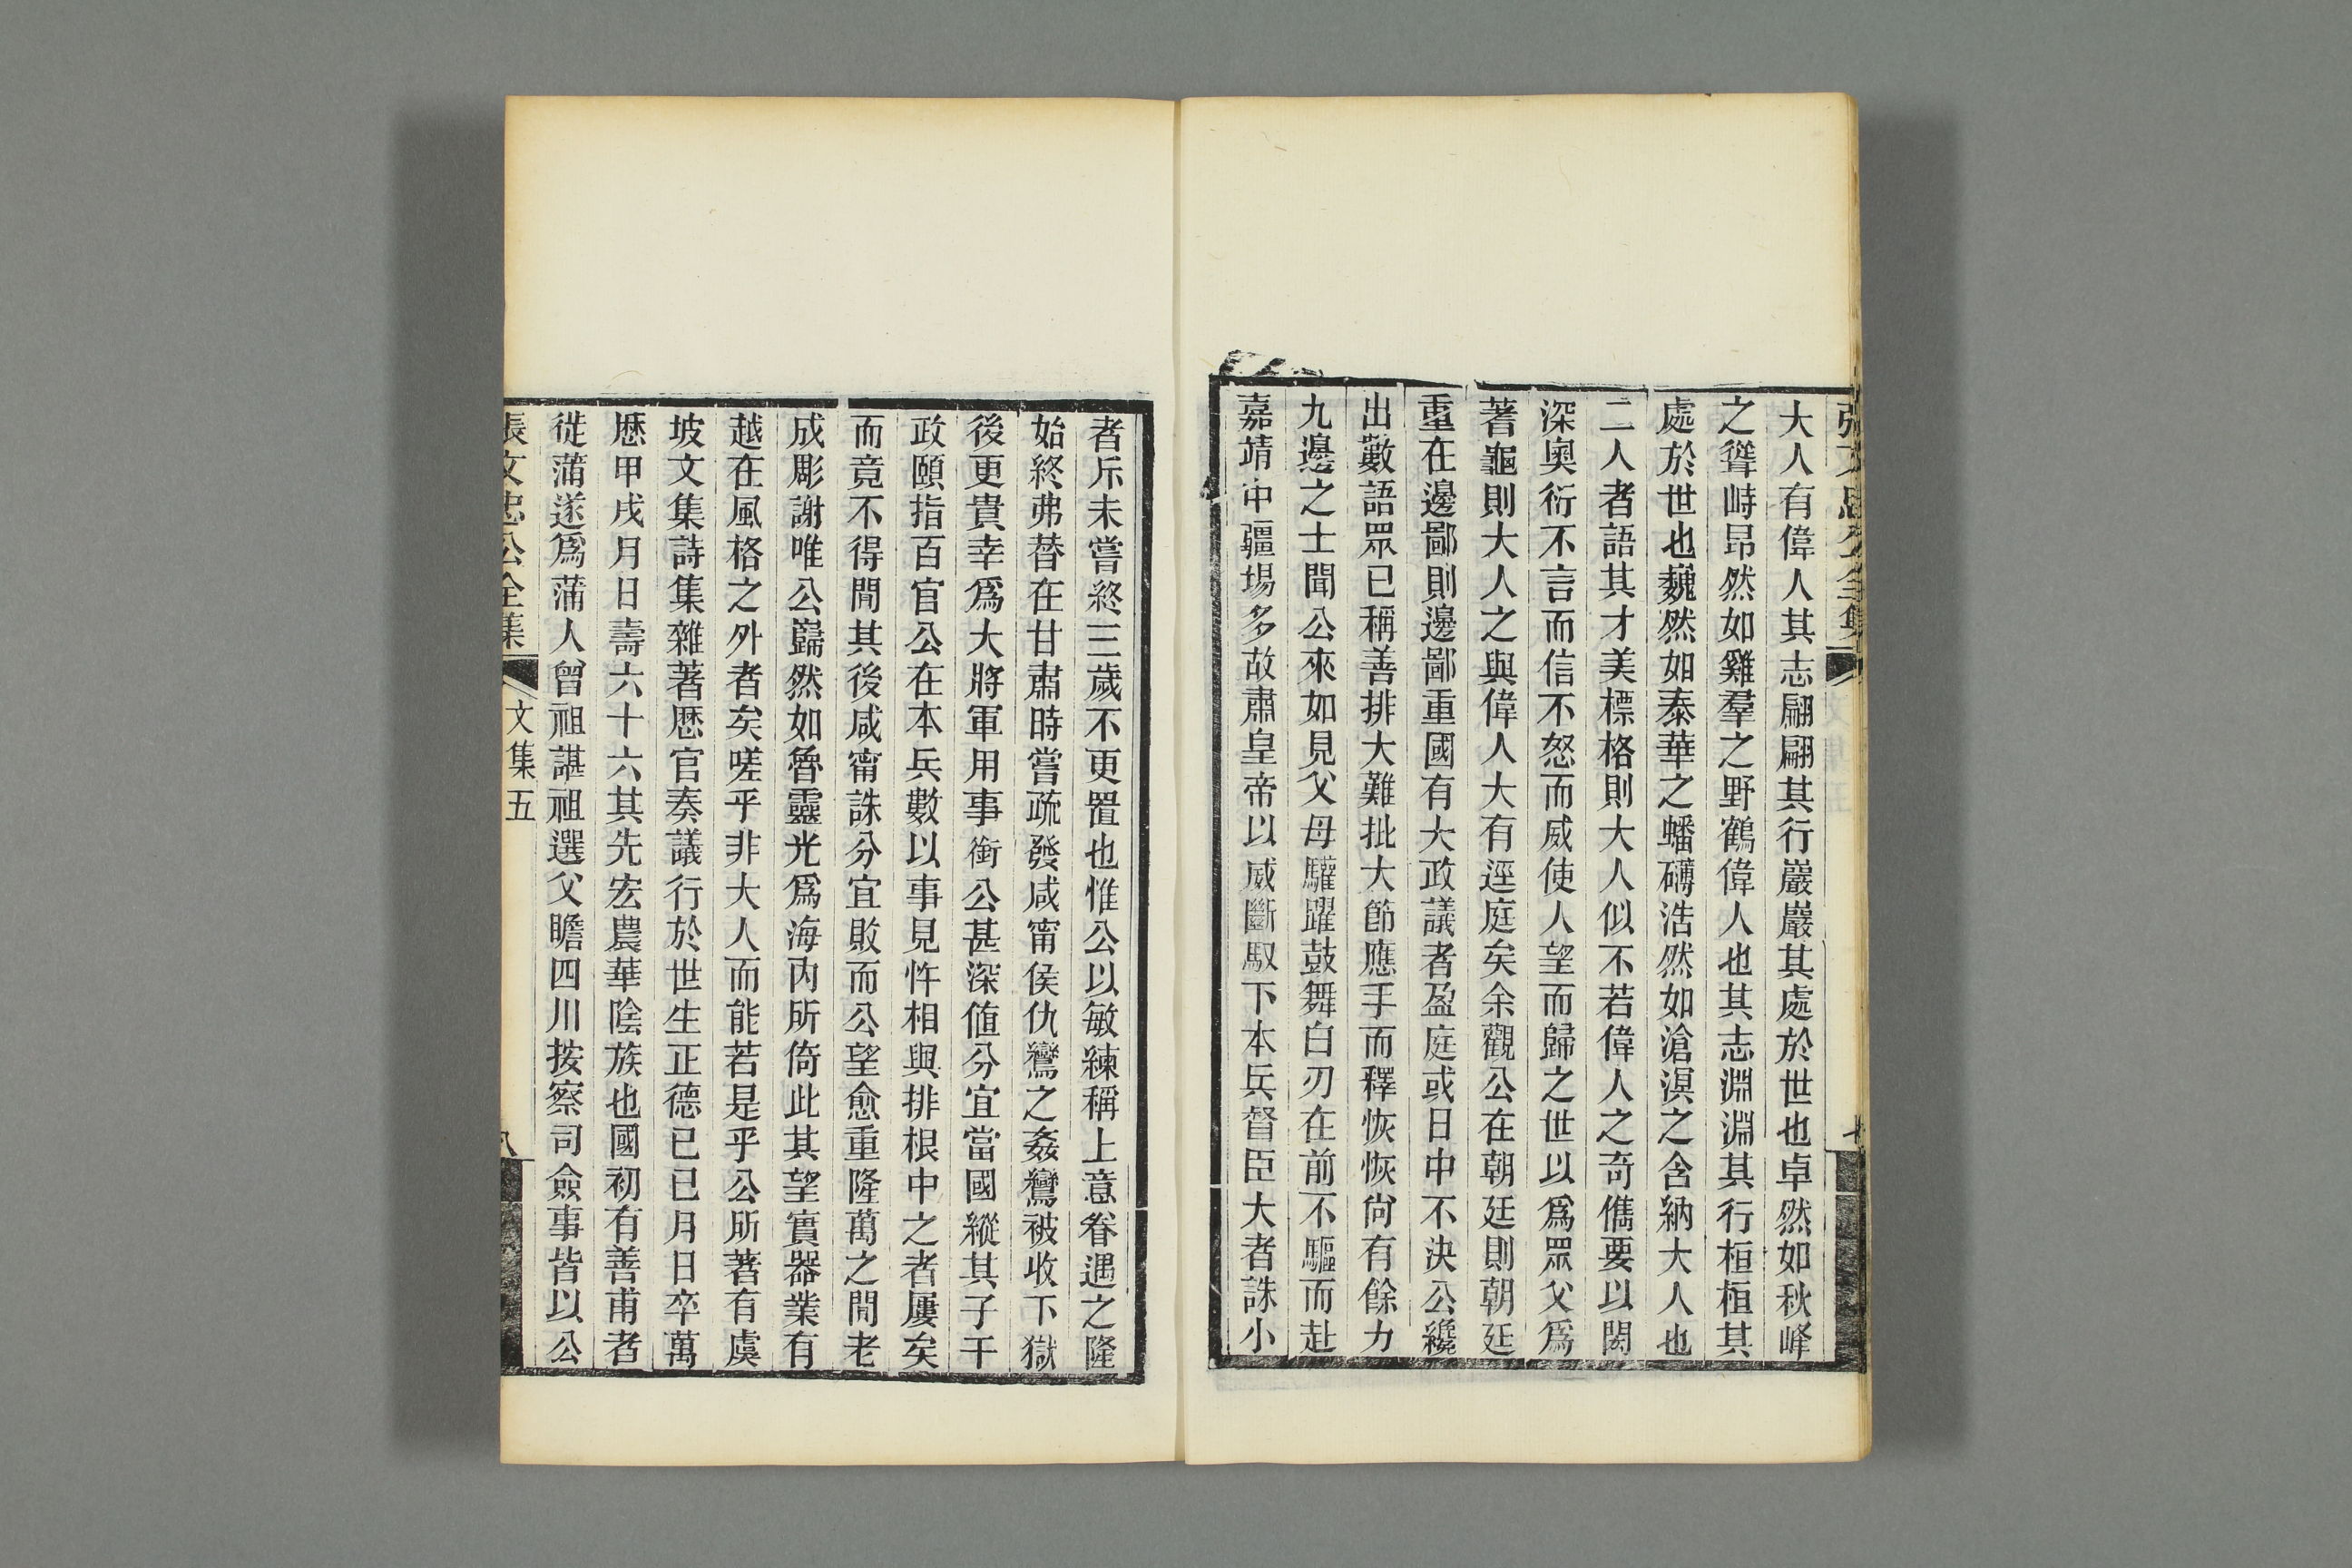 張文忠公全集
七
大人有偉人其志翩翩其行巖巖其處於世也卓然如秋峰
之聳峙昂然如雞羣之野鶴偉人也其志淵淵其行桓桓其
處於世也巍然如泰華之蟠礴浩然如滄溟之含納大人也
二人者語其才美標格則大人似不若偉人之奇儁要以閎
深奧衍不言而信不怒而威使人望而歸之世以爲眾父爲
蓍龜則大人之與偉人大有逕庭矣余觀公在朝廷則朝廷
重在邊鄙則邊鄙重國有大政議者盈庭或日中不決公纔
出數語眾已稱善排大難批大節應手而釋恢恢尙有餘力
九邊之士聞公來如見父母驩躍鼓舞白刃在前不驅而赴
嘉靖中疆場多故肅皇帝以威斷馭下本兵督臣大者誅小
者斥未嘗終三歲不更置也惟公以敏練稱上意眷遇之隆
始終弗替在甘肅時嘗疏發咸甯侯仇鸞之姦鸞被收下獄
後更貴幸爲大將軍用事銜公甚深値分宜當國縱其子干
政頤指百官公在本兵數以事見忤相與排根中之者屢矣
而竟不得閒其後咸甯誅分宜敗而公望愈重隆萬之閒老
成彫謝唯公巋然如魯靈光爲海內所倚此其望實器業有
越在風格之外者矣嗟乎非大人而能若是乎公所著有虞
坡文集詩集雜著歷官奏議行於世生正德已巳月日卒萬
歷甲戌月日壽六十六其先宏農華陰族也國初有善甫者
徙蒲遂爲蒲人曾祖諶祖選父瞻四川按察司僉事皆以公
張文忠公全集
文集五
八